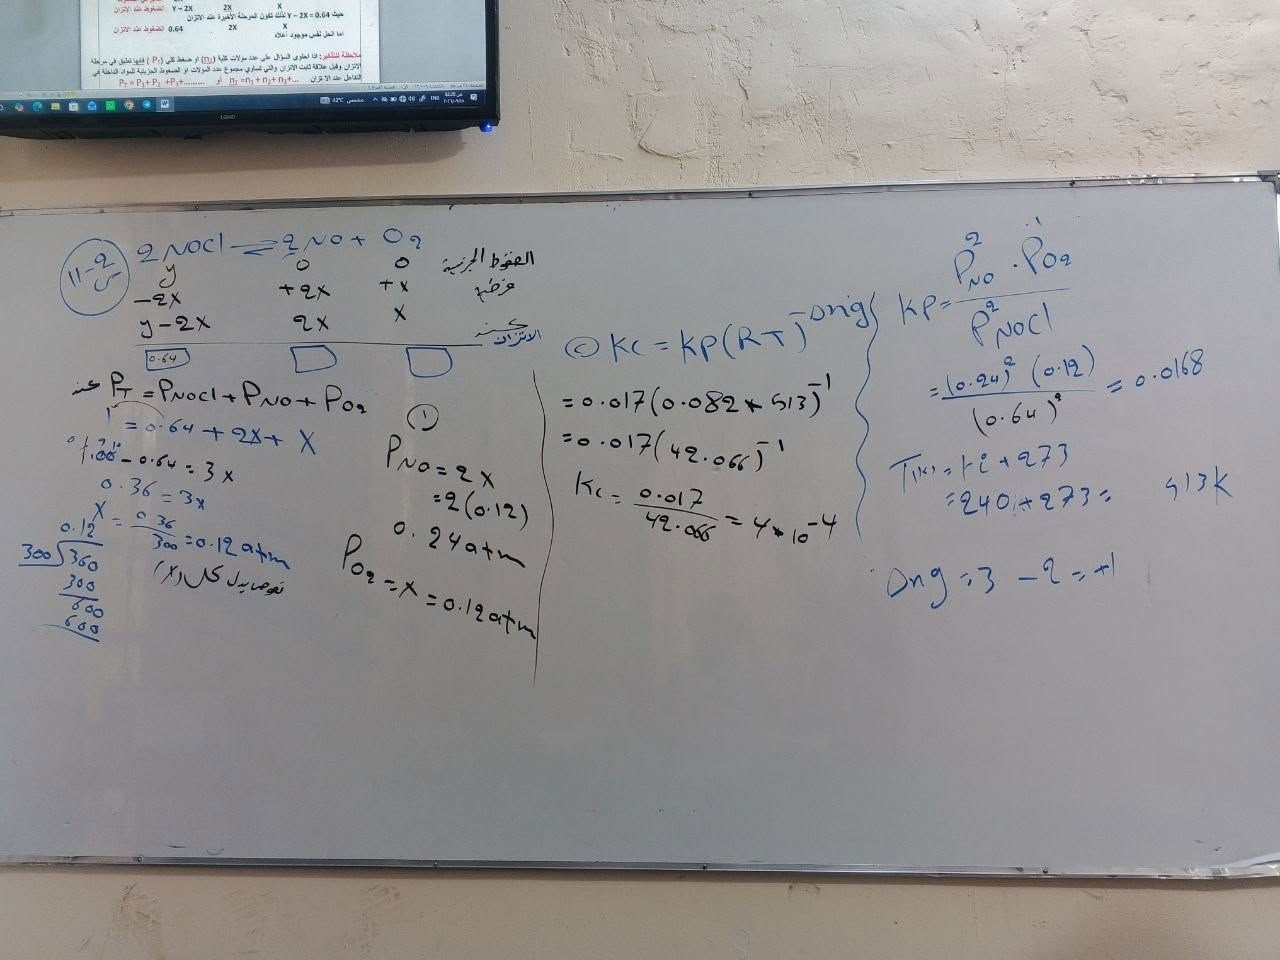 Y – 2X 2X X الضغوط عند الاتزان
حيث Y – 2X = 0.64 لذلك تكون المرحلة الأخيرة عند الاتزان
0.64 2X X الضغوط عند الاتزان
اما الحل نفس موجود أعلاه
ملاحظة للتذكير: اذا احتوى السؤال على عدد مولات كلية (nT) او ضغط كلي (PT) فإنها تطبق في مرحلة
الاتزان وقبل علاقة ثابت الاتزان والتي تساوي مجموع عدد المولات او الضغوط الجزيئية للمواد الداخلة في
التفاعل عند الاتزان nT = n1 + n2 + n3+... أو PT = P1 + P2 +P3+.........
42°C
ENG
LGHD
س 2-11
2NOCl ⇌ 2NO + O2
y 0 0 الضغوط الجزئية
-2x +2x +x
y-2x 2x x عند الاتزان
0.64
عند PT = PNOCl + PNO + PO2
1 = 0.64 + 2x + x
1.00 - 0.64 = 3x
0.36 = 3x
x = 0.36/300 = 0.12 atm
0.12
300 360
300
600
600
نعوض بدل كل (x)
①
PNO = 2x
= 2(0.12)
0.24 atm
PO2 = x = 0.12 atm
Ⓒ Kc = Kp(RT)^-Δng
= 0.017(0.082 * 513)^-1
= 0.017(42.066)^-1
Kc = 0.017/42.066 = 4 * 10^-4
KP = P²NO . P¹O2 / P²NOCl
= (0.24)² (0.12) / (0.64)² = 0.0168
T(K) = tc + 273
= 240 + 273 = 513 K
Δng = 3 - 2 = +1